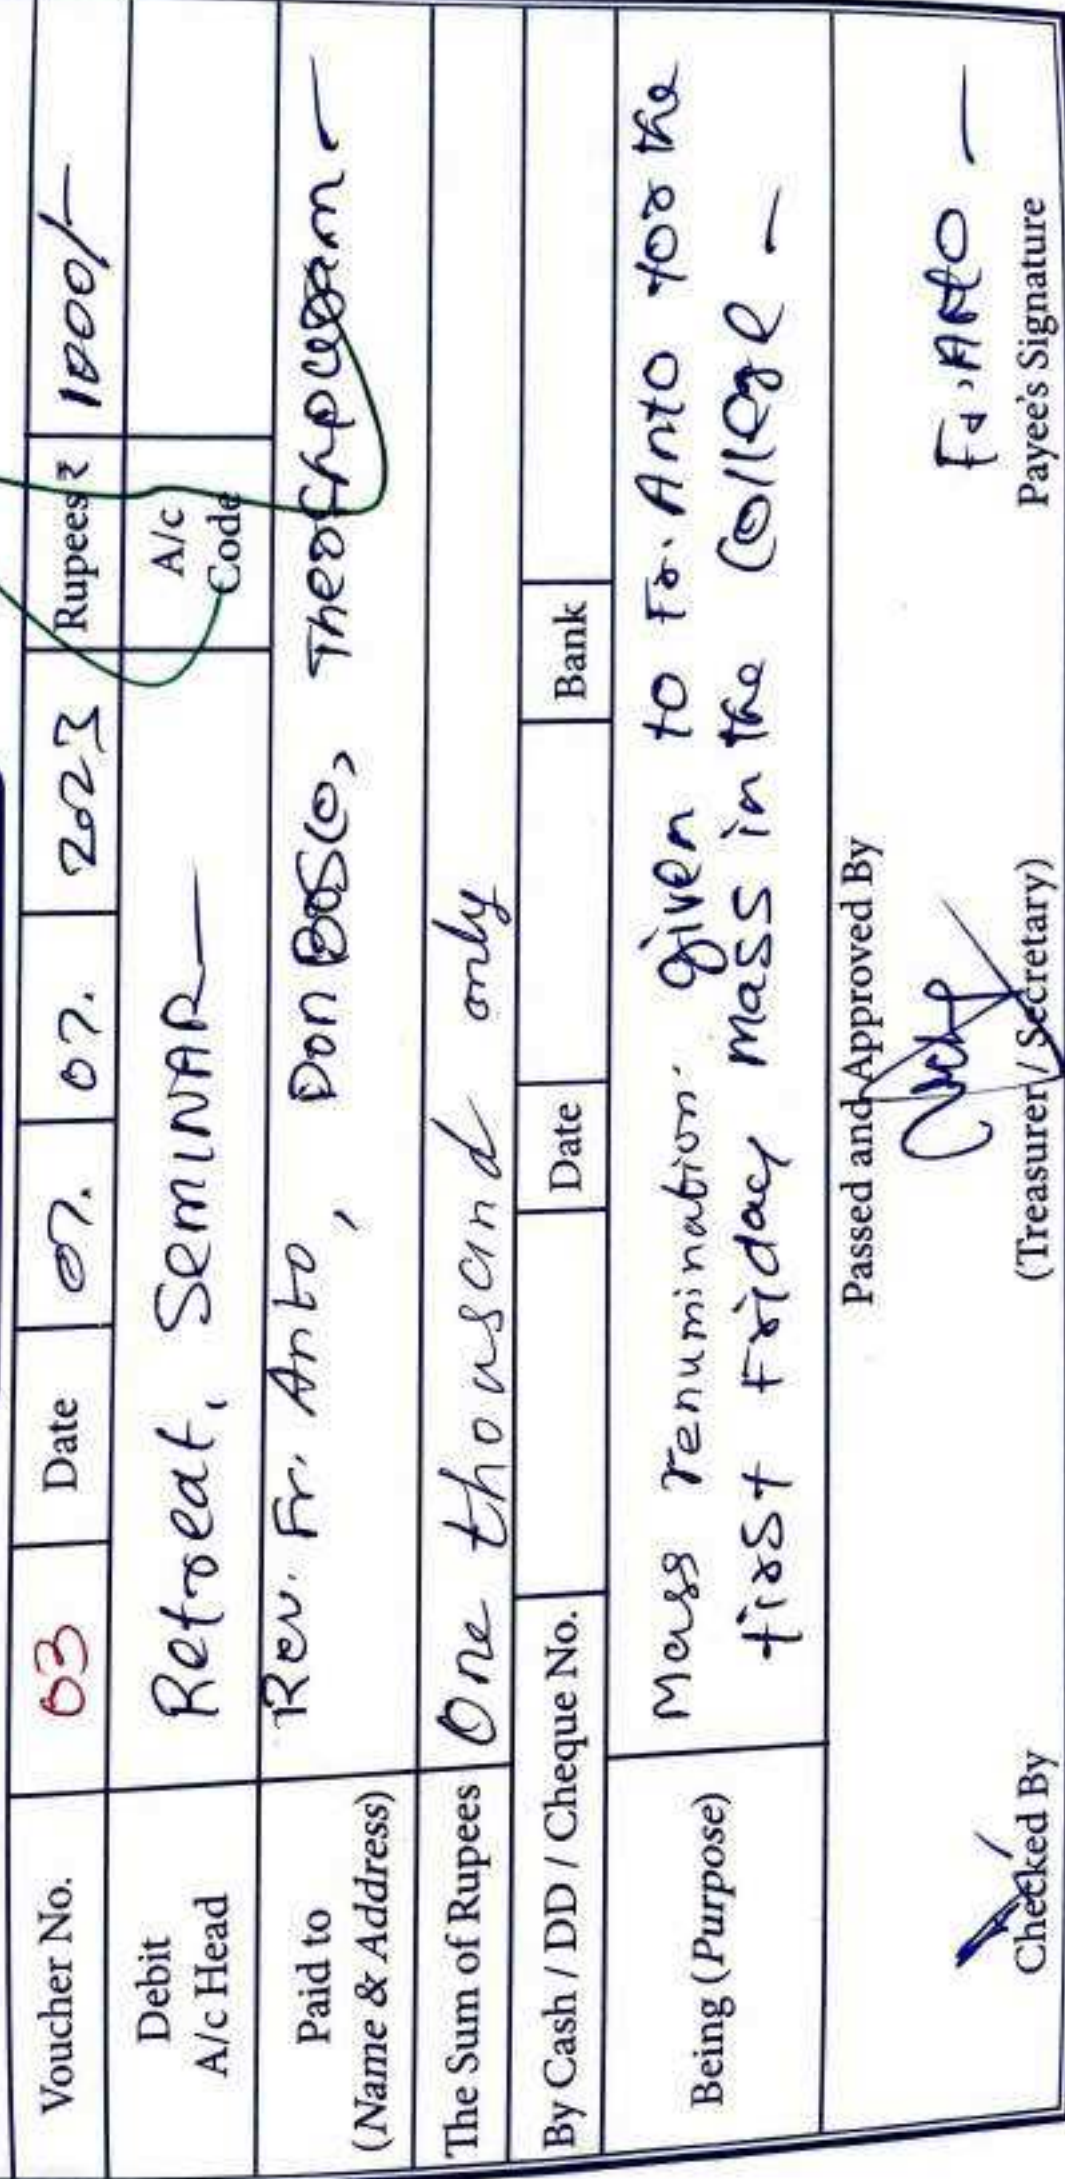 Voucher No. 03 Date 07. 07. 2023 Rupees ₹ 1000/-
Debit
A/c Head Retreat, SEMINAR
A/c
Code
Paid to
(Name & Address) Rev. Fr. Anto, Don Bosco,
The Sum of Rupees One thousand only
By Cash / DD / Cheque No. Date Bank
Being (Purpose) Mass renumination given to Fr. Anto for the
first Friday mass in the College
Passed and Approved By
Fr. Anto
Checked By (Treasurer / Secretary) Payee's Signature